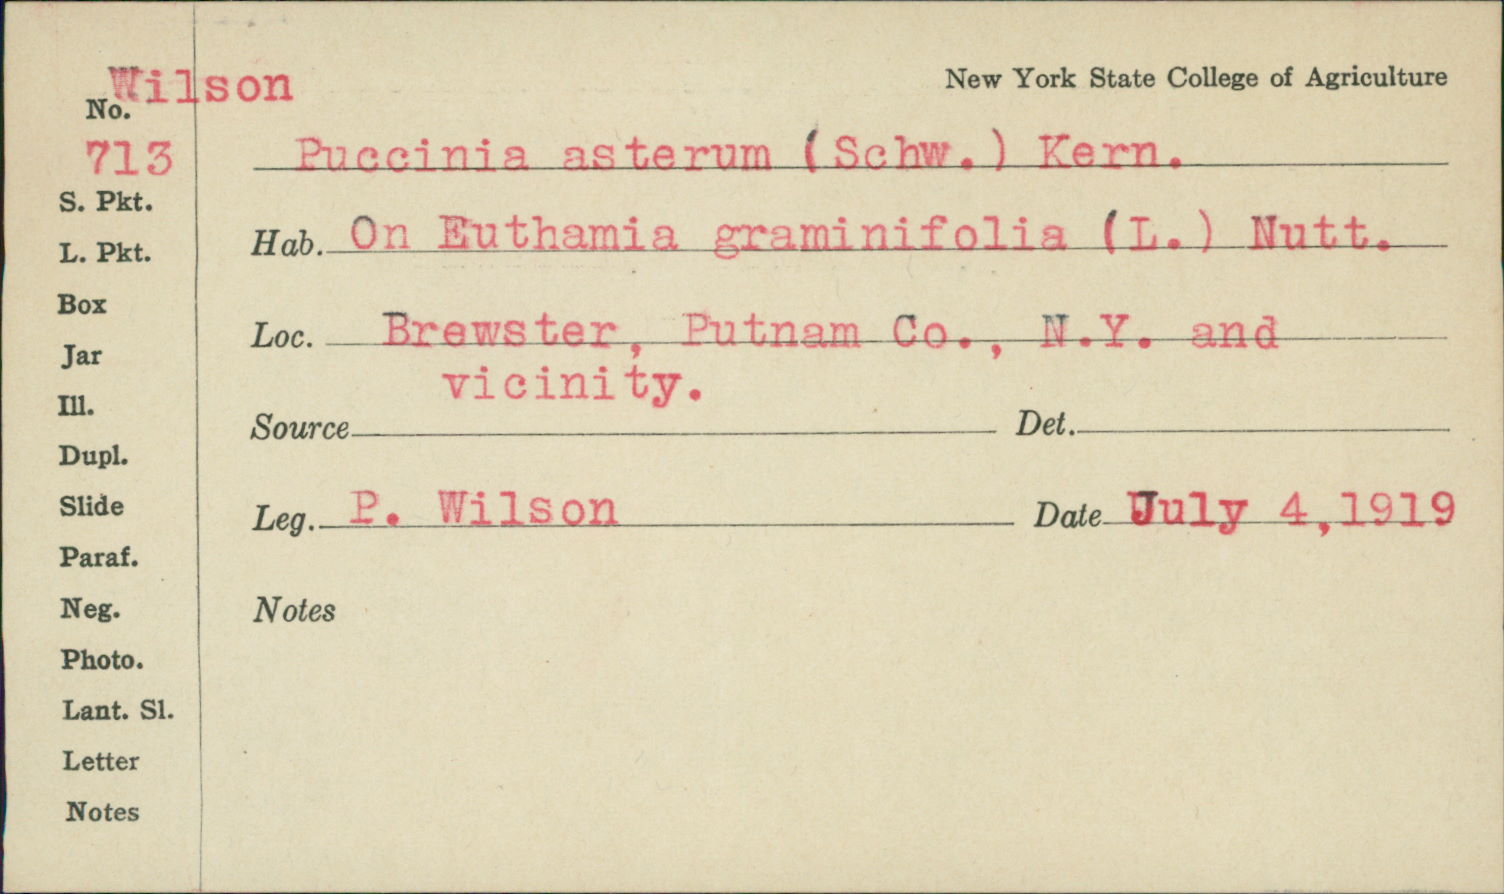 Wilson
New York State College of Agriculture
No.
713
Puccinia asterum (Schw.) Kern.
S. Pkt.
Hab. On Euthamia graminifolia (L.) Nutt.
L. Pkt.
Box
Loc. Brewster, Putnam Co., N.Y. and
vicinity.
Jar
Ill.
Source Det.
Dupl.
Slide
Leg. P. Wilson Date July 4,1919
Paraf.
Neg.
Notes
Photo.
Lant. Sl.
Letter
Notes